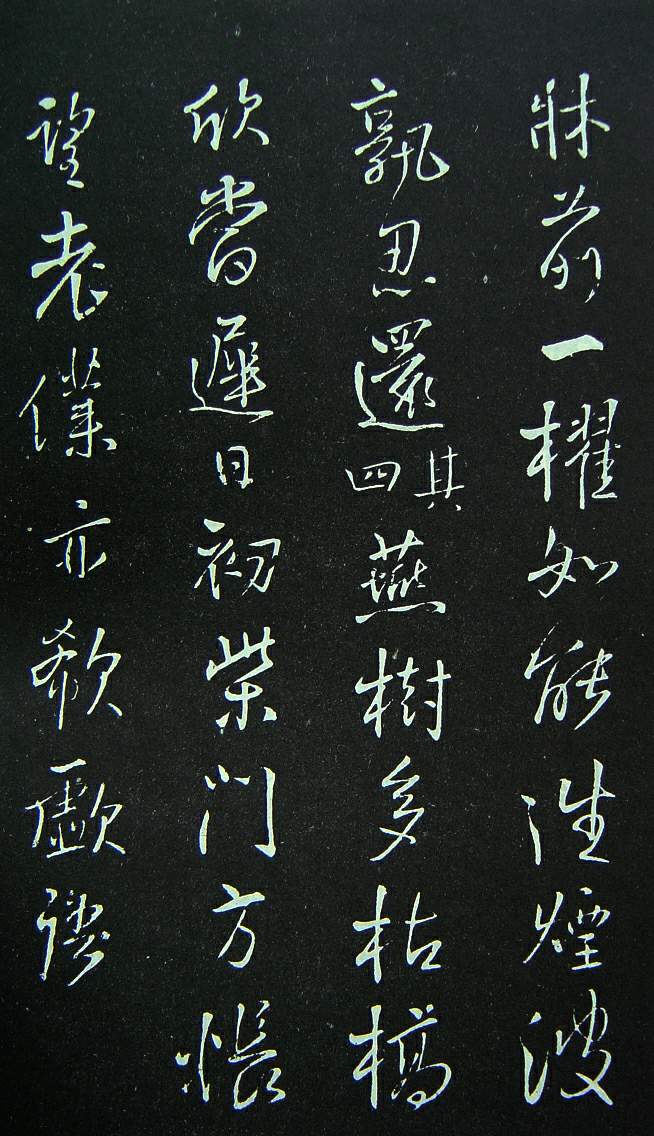 牀前一櫂如能准煙波
孰忍還其四燕樹多枯槁
欣嘗遲日初柴門方悵
望老僕亦欷歔